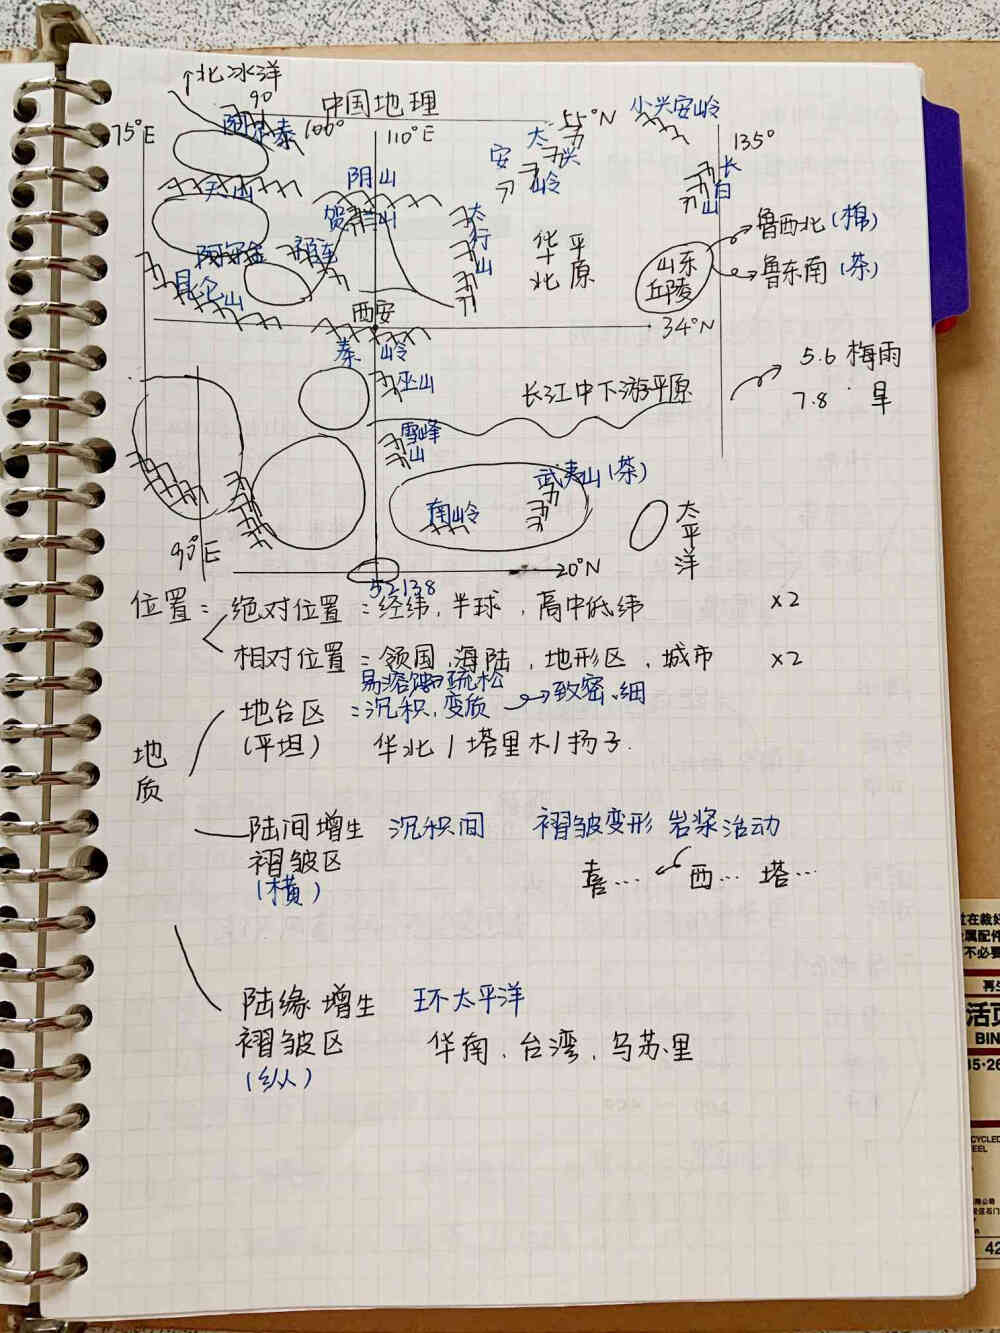 ↑北冰洋
90°
中国地理
75°E
阿尔泰
100°
110°E
55°N
小兴安岭
135°
大兴安岭
长白山
天山
阴山
贺兰山
太行山
华北平原
山东丘陵
鲁西北(棉)
鲁东南(茶)
阿尔金
祁连
昆仑山
西安
34°N
秦岭
巫山
长江中下游平原
5.6 梅雨
7.8 旱
雪峰山
武夷山(茶)
南岭
太平洋
90°E
20°N
52138
位置:绝对位置:经纬、半球、高中低纬 ×2
相对位置:领国、海陆、地形区、城市 ×2
易溶蚀 疏松
地质
地台区:沉积、变质→致密、细
(平坦) 华北/塔里木/扬子.
陆间增生 沉积间 褶皱变形 岩浆活动
褶皱区 喜… 西… 塔…
(横)
陆缘增生 环太平洋
褶皱区 华南、台湾、乌苏里
(纵)
在裁好
属配件
不必要
再生
活页
BIN
42